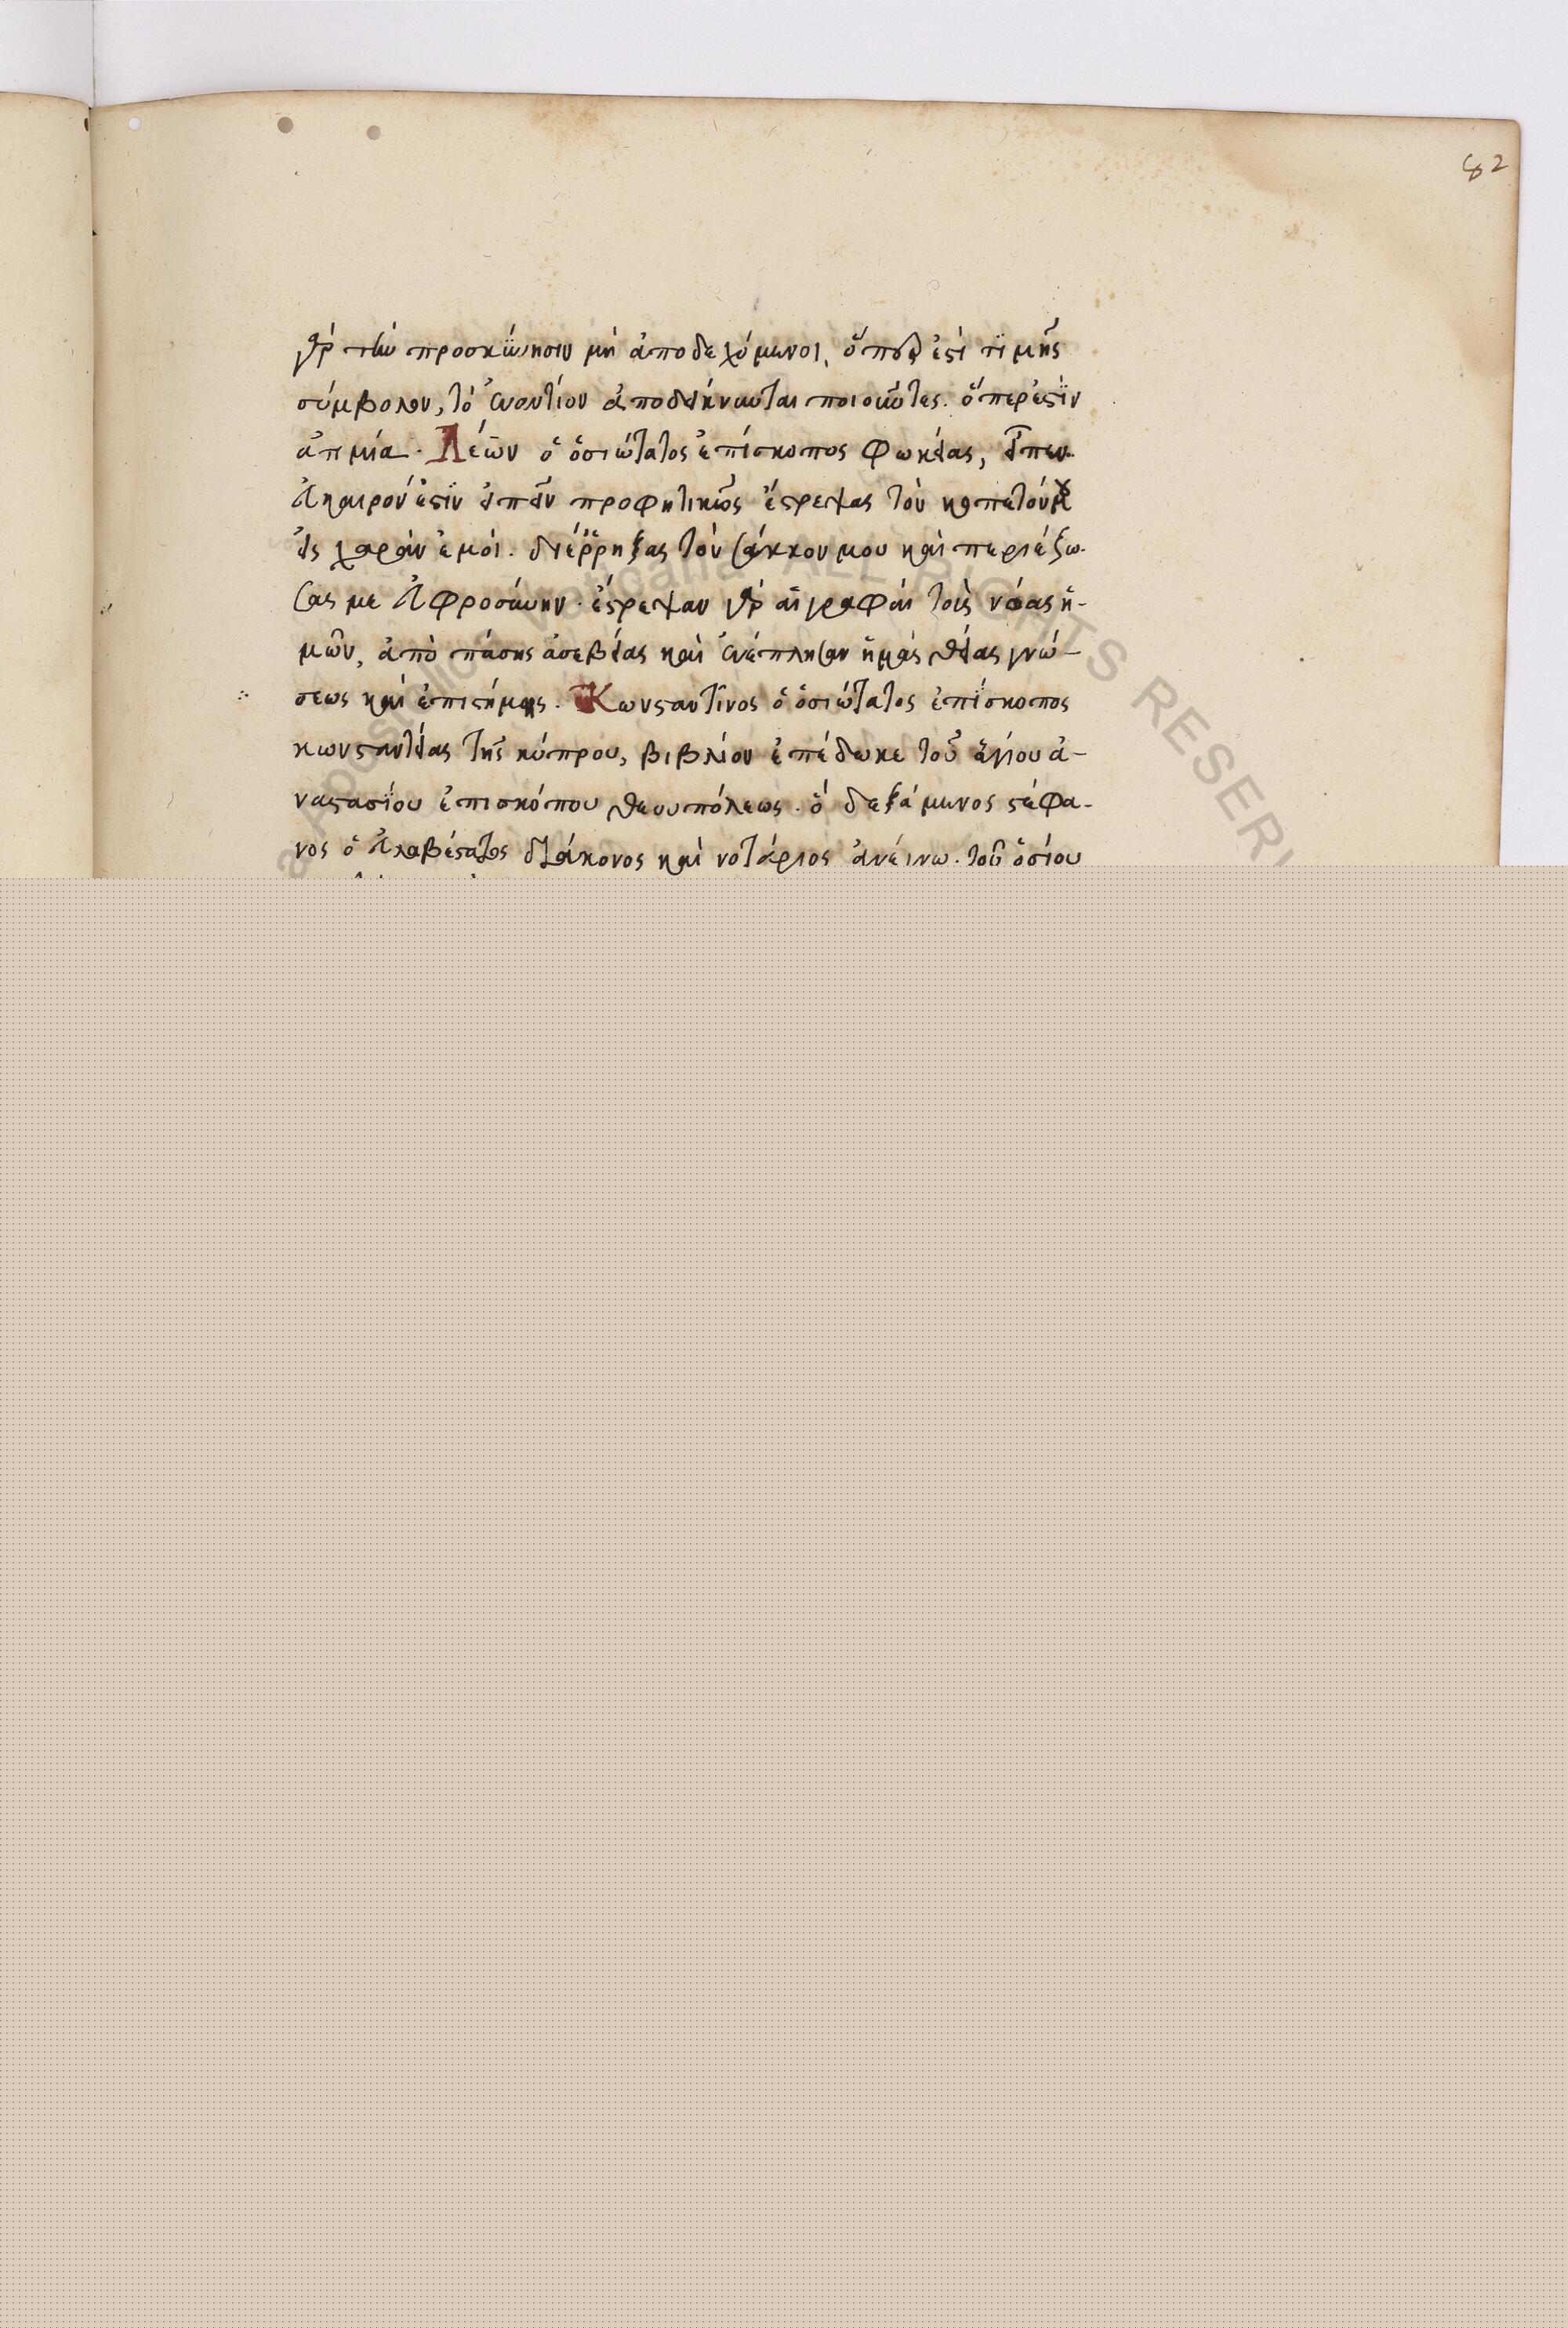 82
γὰρ τὴν προσκύνησιν μὴ ἀποδεχόμενοι, ὅπερ ἐστὶ τιμῆς
σύμβολον, τὸ ἐναντίον ἀποδείκνυνται ποιοῦντες. ὅπερ ἐστὶν
ἀτιμία. Λέων ὁ ὁσιώτατος ἐπίσκοπος φωκείας, εἶπεν.
εὔκαιρον ἐστὶν εἰπεῖν προφητικῶς ἔστρεψας τὸν κοπετόν μου
εἰς χαρὰν ἐμοί. διέρρηξας τὸν σάκκον μου καὶ περιέζω-
σας με εὐφροσύνην. ἔστρεψαν γὰρ αἱ γραφαὶ τοὺς νόας ἡ-
μῶν, ἀπὸ πάσης ἀσεβείας καὶ ἐνέπλησαν ἡμᾶς θείας γνώ-
σεως καὶ ἐπιστήμης. Κωνσταντῖνος ὁ ὁσιώτατος ἐπίσκοπος
κωνσταντείας τῆς κύπρου, βιβλίον ἐπέδωκε τοῦ ἁγίου ἀ-
ναστασίου ἐπισκόπου θεουπόλεως. ὃ δεξάμενος στέφα-
νος ὁ εὐλαβέστατος διάκονος καὶ νοτάριος ἀνέγνω. τοῦ ὁσίου
ALL RIGHTS RESER